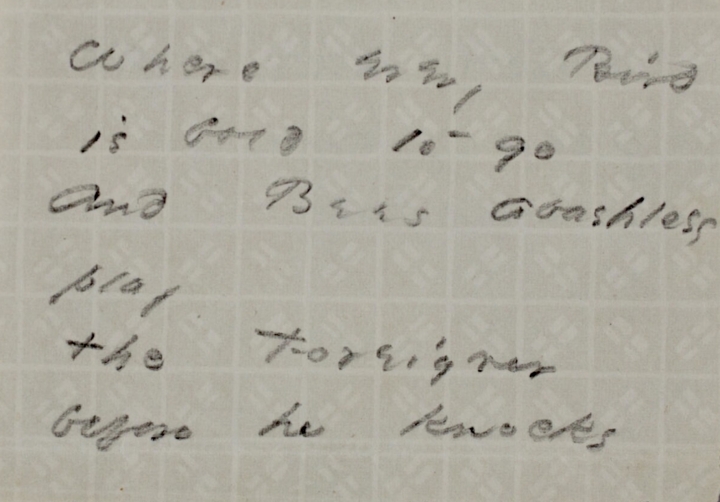 Where every Bird
is bold to go
And Bees abashless
play
the Foreigner
before he knocks